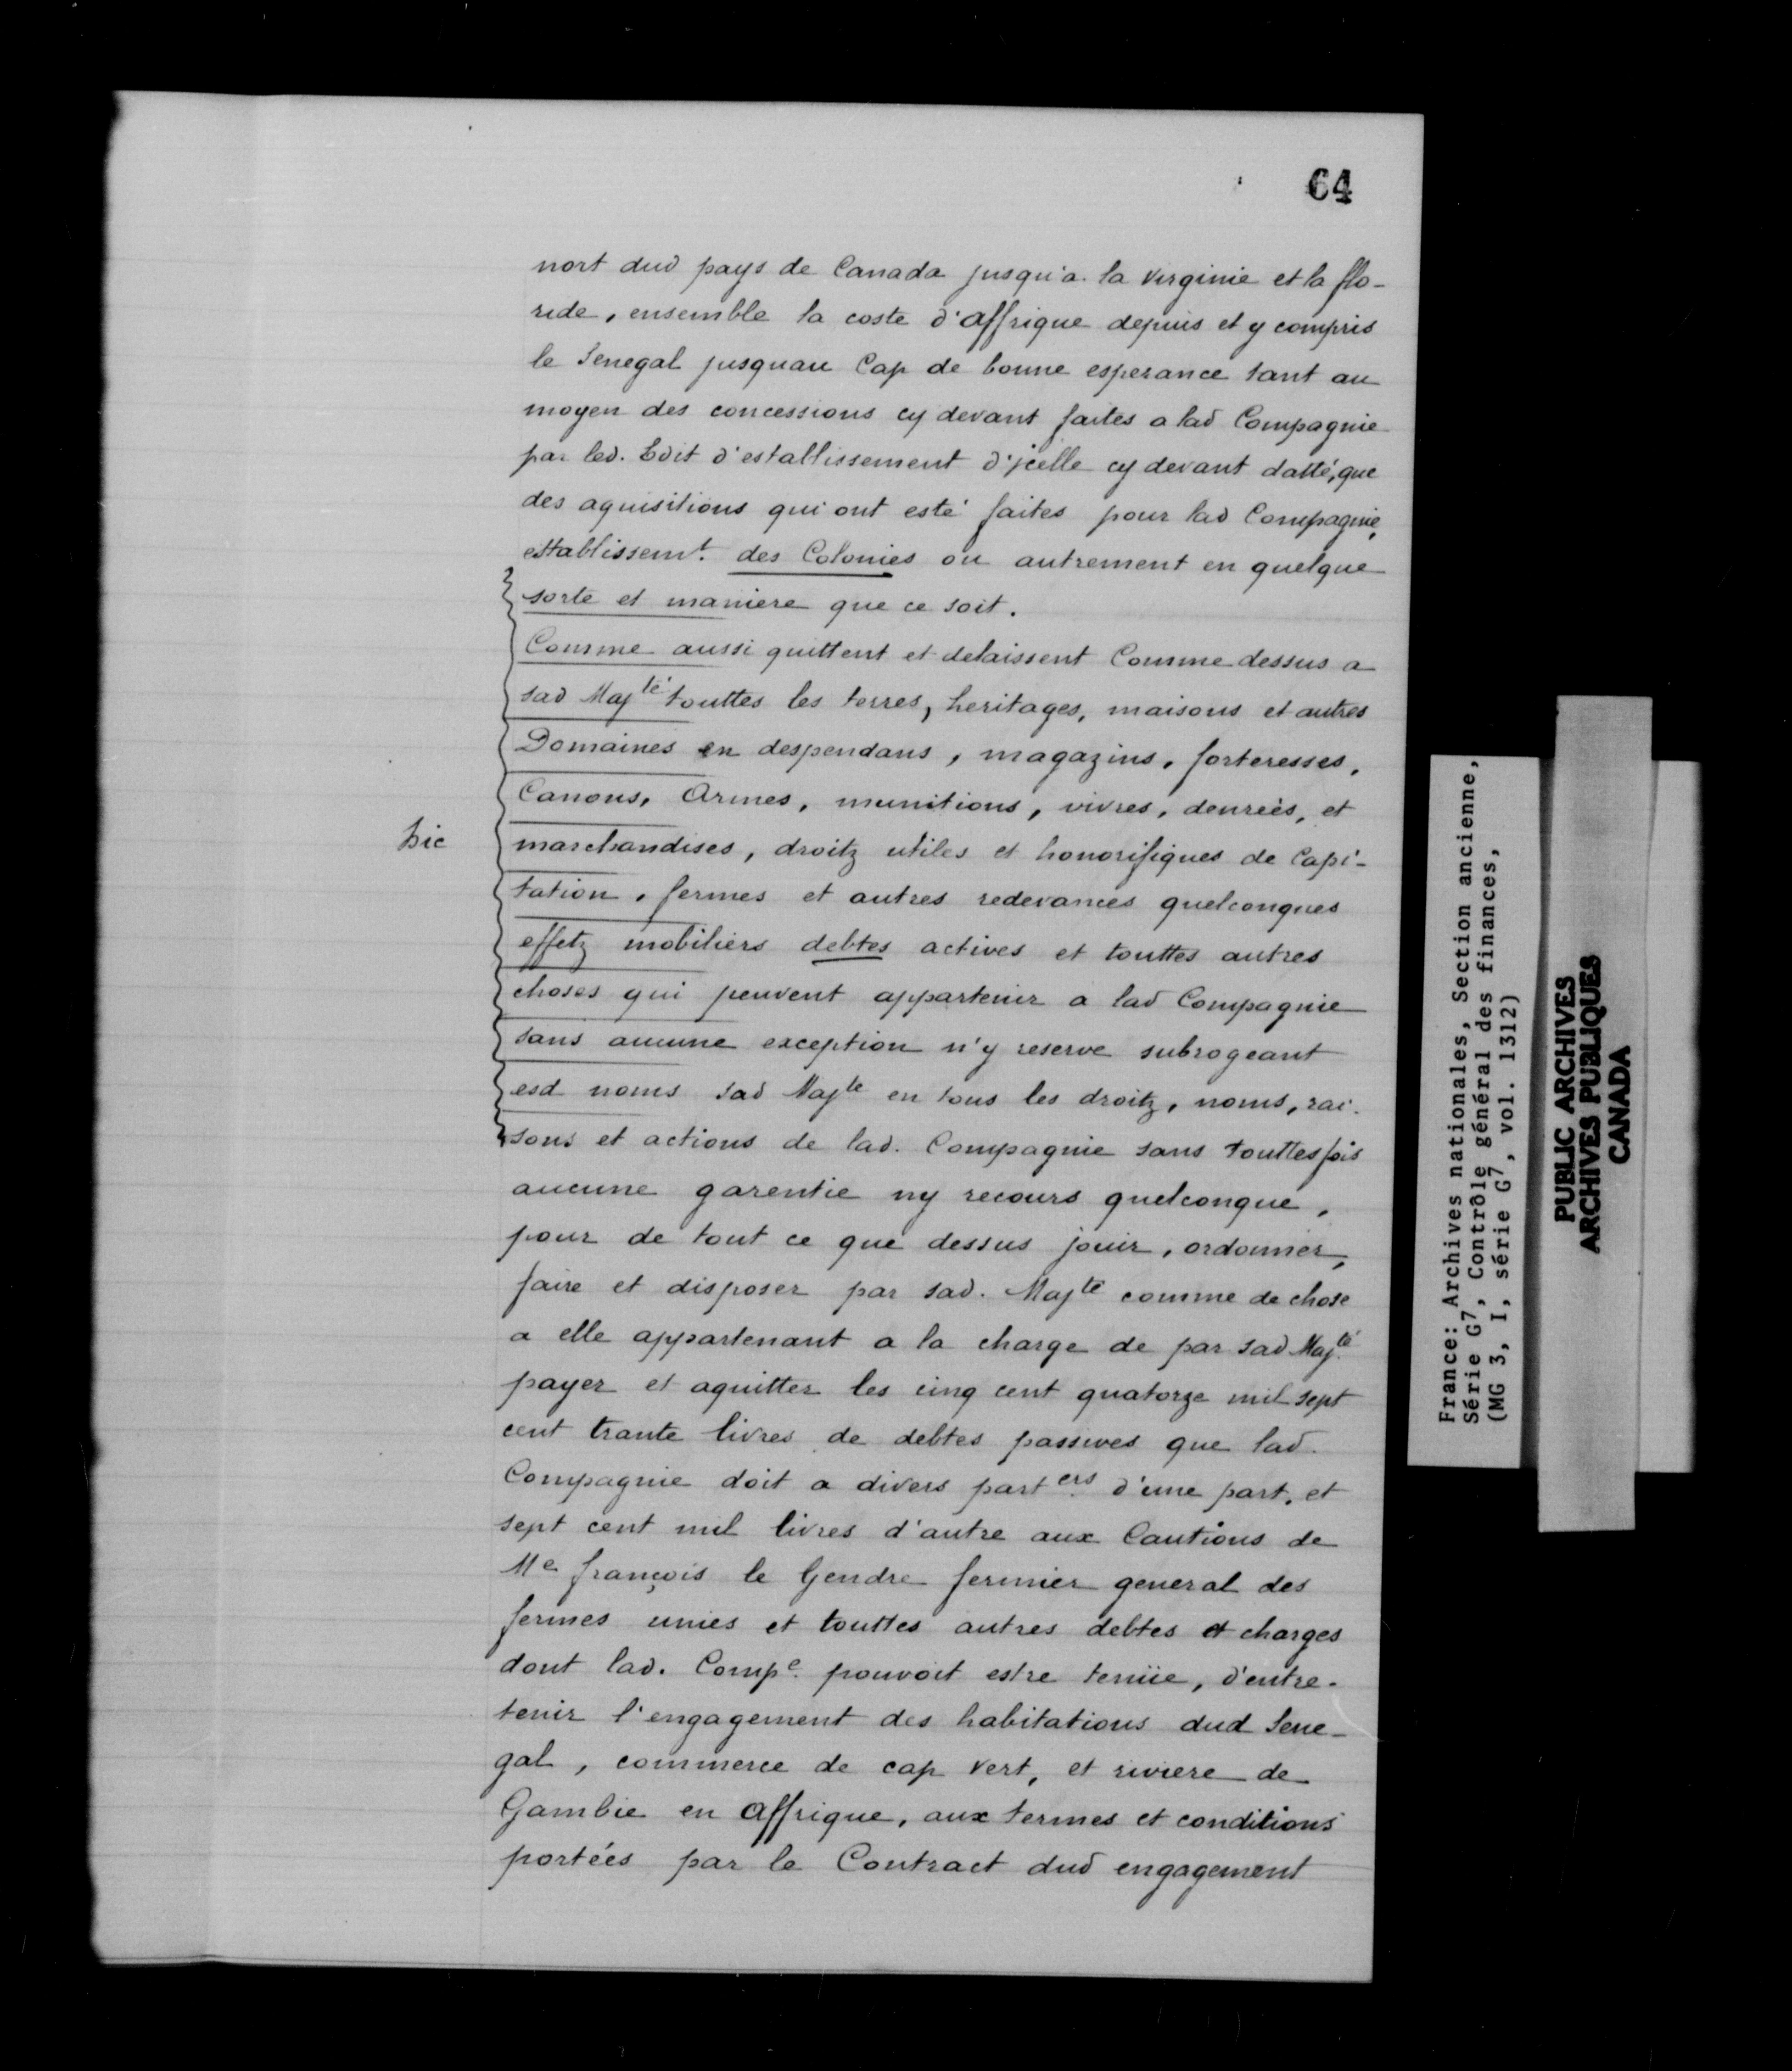 64
nort dud pays de Canada jusqu'a la virginie et la flo-
ride, ensemble la coste d'affrique depuis et y compris
le Senegal jusquau Cap de bonne esperance tant au
moyen des concessions cy devant faites a lad Compagnie
par led. Edit d'establissement d'jcelle cy devant datté, que
des aquisitions qui ont esté faites pour lad Compagnie,
establissemt. des Colonies ou autrement en quelque
sorte et maniere que ce soit.
Comme aussi quittent et delaissent Comme dessus a
sad Majté touttes les terres, heritages, maisons et autres
Domaines en despendans, magazins, forteresses,
Canons, Armes, munitions, vivres, denrées, et
sic
marchandises, droitz utiles et honorifiques de Capi-
tation, fermes et autres redevances quelconques
effetz mobiliers debtes actives et touttes autres
choses qui peuvent appartenir a lad Compagnie
sans aucune exception n'y reserve subrogeant
esd noms sad Majte en tous les droitz, noms, rai-
sons et actions de lad. Compagnie sans touttesfois
aucune garentie ny recours quelconque,
pour de tout ce que dessus jouir, ordonner,
faire et disposer par sad. Majté comme de chose
a elle appartenant a la charge de par sad Majté
payer et aquitter les cinq cent quatorze mil sept
cent trante livres de debtes passives que lad.
Compagnie doit a divers parters d'une part, et
sept cent mil livres d'autre aux Cautions de
Me françois le Gendre fermier general des
fermes unies et touttes autres debtes et charges
dont lad. Compe. pouvoit estre tenüe, d'entre-
tenir l'engagement des habitations dud Sene-
gal, commerce de cap vert, et riviere de
Gambie en affrique, aux termes et conditions
portées par le Contract dud engagement
France: Archives nationales, Section ancienne,
Série G7, Contrôle général des finances,
(MG 3, I, série G7, vol. 1312)
PUBLIC ARCHIVES
ARCHIVES PUBLIQUES
CANADA